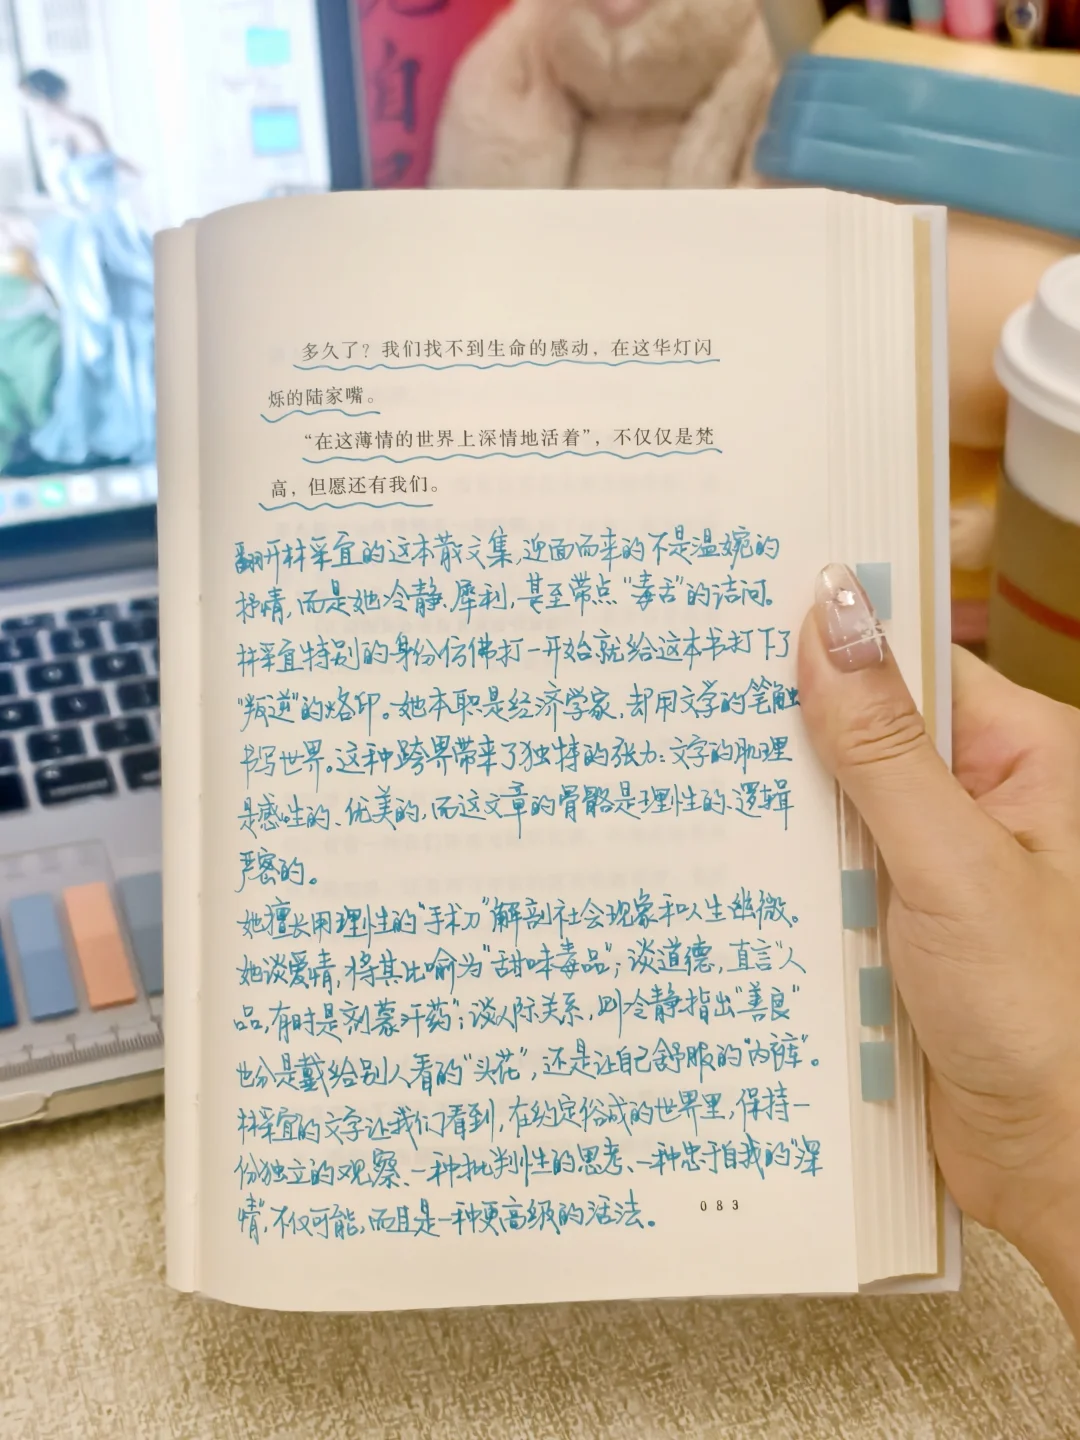 自
多久了？我们找不到生命的感动，在这华灯闪
烁的陆家嘴。
“在这薄情的世界上深情地活着”，不仅仅是梵
高，但愿还有我们。
翻开林采宜的这本散文集,迎面而来的不是温婉的
抒情,而是她冷静、犀利,甚至带点“毒舌”的诘问。
林采宜特别的身份仿佛打一开始就给这本书打下了
“叛逆”的烙印。她本职是经济学家,却用文学的笔触
书写世界。这种跨界带来了独特的张力：文字的肌理
是感性的、优美的,而这文章的骨骼是理性的、逻辑
严密的。
她擅长用理性的“手术刀”解剖社会现象和人生幽微。
她谈爱情,将其比喻为“甜味毒品”；谈道德,直言“人
品,有时是剂蒙汗药”；谈人际关系,则冷静指出“善良”
也分是戴给别人看的“头花”,还是让自己舒服的“内裤”。
林采宜的文字让我们看到,在约定俗成的世界里,保持一
份独立的观察、一种批判性的思考、一种忠于自我的“深
情”,不仅可能,而且是一种更高级的活法。
083